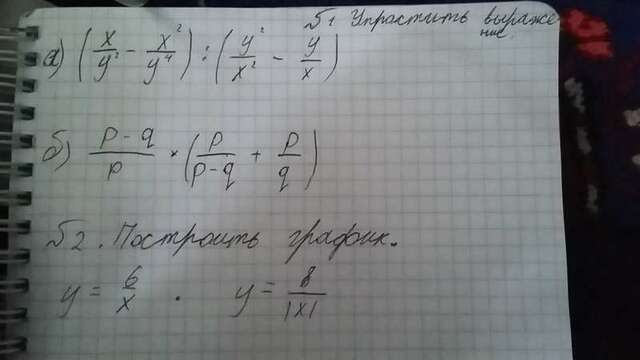 №1 Упростить выраже
ние.
а) (x/y² - x²/y⁴) : (y²/x² - y/x)
б) (p-q)/p × (p/(p-q) + p/q)
№2. Построить график.
y = 6/x . y = 8/|x|